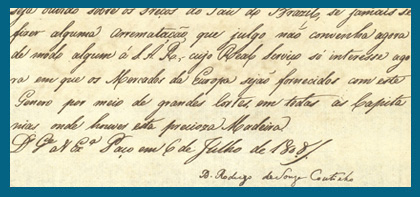 seja ouvido sobre os Preços do Páu do Brazil, se jamais se
fizer alguma arrematação, que julgo não convenha agora
de modo algum á S.A.R., cujo Real Serviço se interessa ago
ra em que os Mercados da Europa sejão fornecidos com este
Genero por meio de grandes Cortes em todas as Capita
nias onde houver esta precioza Madeira
D.s G.e a V. Ex.a Paço em 6 de Julho de 1808/
D. Rodrigo de Souza Coutinho